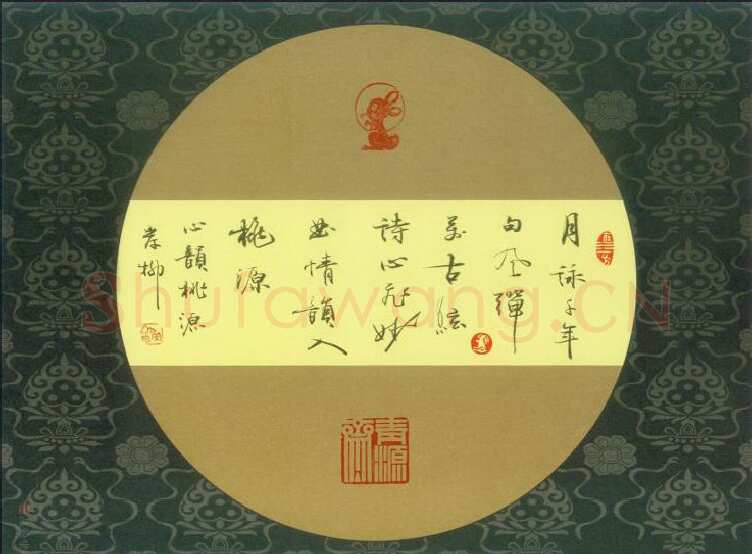 月詠千年
句風彈
萬古絃
詩心飛妙
曲情韻入
桃源
心韻桃源
柳
Shufawang.CN